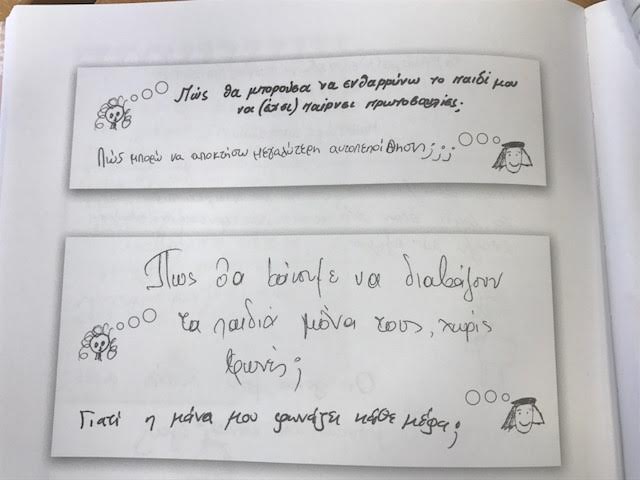 Πώς θα μπορούσα να ενθαρρύνω το παιδί μου
να (έχει) παίρνει πρωτοβουλίες;
Πώς μπορώ να αποκτήσω μεγαλύτερη αυτοπεποίθηση;;;
Πως θα κάνουμε να διαβάζουν
τα παιδιά μόνα τους, χωρίς
φωνές;
Γιατί η μάνα μου φωνάζει κάθε μέρα;